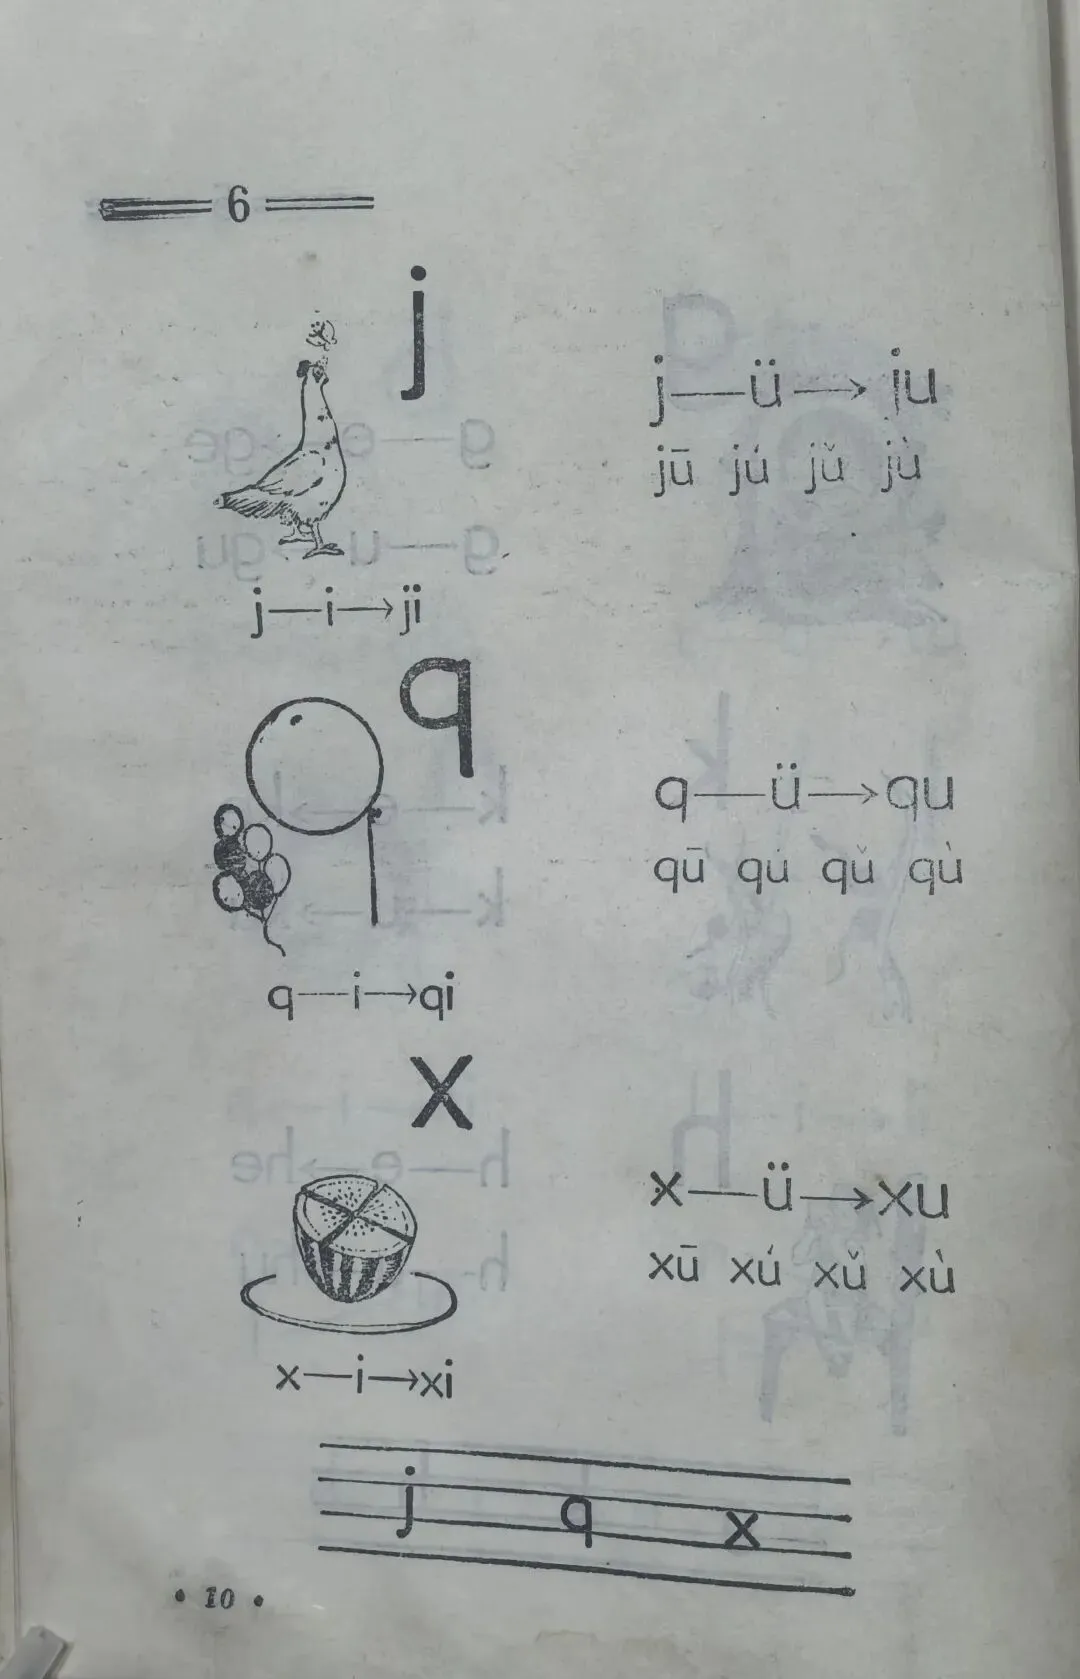 6
j
j—i→ji
j—ü→ju
jū jú jǔ jù
q
q—i→qi
q—ü→qu
qū qú qǔ qù
x
x—i→xi
x—ü→xu
xū xú xǔ xù
j q x
• 10 •